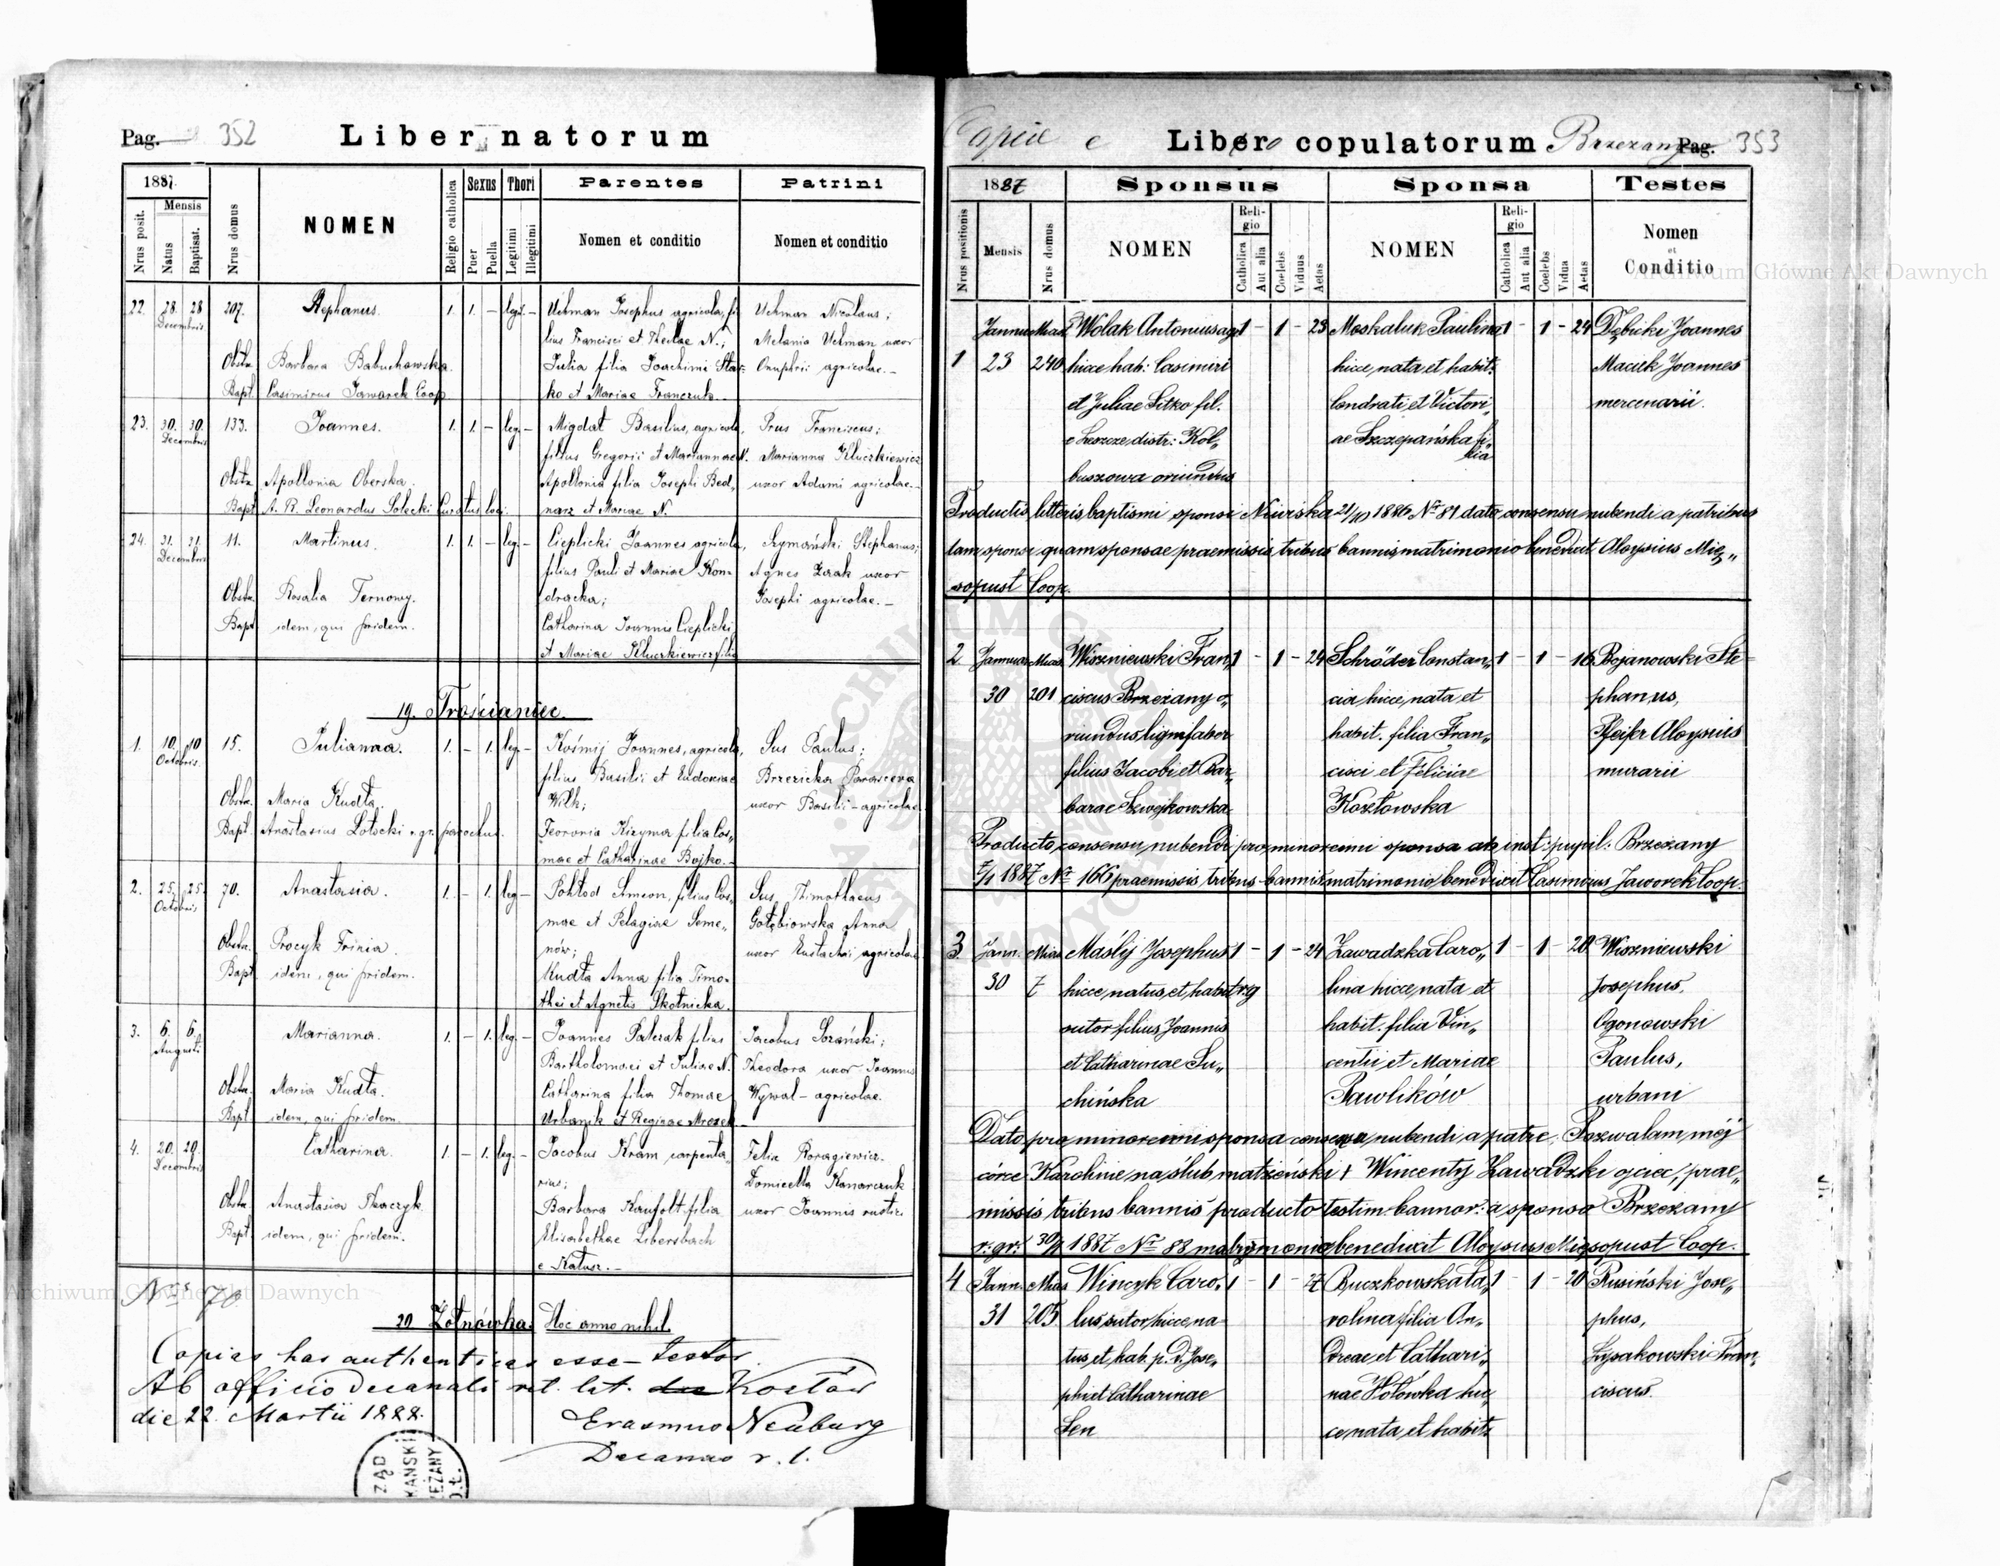 Pag. 352
Liber natorum
1887.
Nrus posit.
Mensis
Natus
Baptisat.
Nrus domus
NOMEN
Religio catholica
Sexus
Puer
Puella
Thori
Legitimi
Illegitimi
Parentes
Nomen et conditio
Patrini
Nomen et conditio
22. 28. 28 207. Stephanus. 1. 1. – leg. – Uchman Josephus agricola, fi- Uchman Nicolaus;
Decembris lius Francisci et Theclae N.; Melania Uchman uxor
Obstr. Barbara Babuchowska. Julia filia Joachimi Star- Onuphrii agricolae. –
Bapt. Casimirus Jaworek Coop. ko et Mariae Franczuk. –
23. 30. 30. 133. Joannes. 1. 1. – leg. – Migdat Basilius, agricola, Prus Franciscus;
Decembris filius Gregorii et Mariannae N. Marianna Kluczkiewicz
Obstr. Apollonia Oberska. Apollonia filia Josephi Bed- uxor Adami agricolae. –
Bapt. A. R. Leonardus Solecki Curatus loci. narz et Mariae N.
24. 31. 31. 11. Martinus. 1. 1. – leg. – Cieplicki Joannes agricola, Szymański Stephanus;
Decembris filius Pauli et Mariae Kon- Agnes Żrak uxor
Obstr. Rosalia Ternowy. dracka; Josephi agricolae. –
Bapt. idem, qui pridem. Catharina Joannis Cieplicki
et Mariae Kluczkiewicz filia
19. Trościaniec.
1. 10. 10 15. Julianna. 1. – 1. leg. – Kośmij Joannes, agricola, Sus Paulus;
Octobris. filius Basilii et Eudoxiae Brzezicka Parasceva
Obstr. Maria Kudła. Wilk; uxor Basilii – agricolae.
Bapt. Anastasius Lotocki r. gr. parochus. Feronia Kizyma filia Cos-
mae et Catharinae Bojko. –
2. 25. 25. 70. Anastasia. 1. – 1. leg. – Pokłod Simeon, filius Cos- Sus Thimothaeus
Octobris mae et Pelagiae Seme- Gołębiowska Anna
Obstr. Procyk Irinia. nów; uxor Eustachii agricolae.
Bapt. idem, qui pridem. Kudła Anna filia Timo-
thei et Agnetis Skotnicka.
3. 6. 6. Marianna. 1. – 1. leg. – Joannes Palczak filius Jacobus Sozański;
Augusti Bartholomaei et Juliae N. Theodora uxor Joannis
Obstr. Maria Kudła. Catharina filia Thomae Wywal – agricolae.
Bapt. idem, qui pridem. Urbanik et Reginae Mrozek –
4. 20. 20. Catharina. 1. – 1. leg. – Jacobus Kram carpenta- Felix
Decembris rius; Domicella Kanarczuk
Obstr. Anastasia Tkaczyk. Barbara Kaufolt filia uxor Joannis rustic.
Bapt. idem, qui pridem. Elisabethae Libersbach
e Katusz. –
Nrs 70
20. Żołnówka. Hoc anno nihil.
Copias has authenticas esse – testor.
Ab officio decanali rit. lat. Kozłów
die 22. Martii 1888.
Erasmus Neuburg
Decanus r. l.
Copia e Libro copulatorum Brzezany Pag. 353
1887
Nrus positionis
Mensis
Nrus domus
Sponsus
NOMEN
Religio
Catholica
Aut alia
Coelebs
Viduus
Aetas
Sponsa
NOMEN
Religio
Catholica
Aut alia
Coelebs
Vidua
Aetas
Testes
Nomen
et
Conditio
Januar Mias Wolak Antonius agr. 1 – 1 – 23 Moskaluk Paulina 1 – 1 – 24 Dębicki Joannes
1 23 240 hicce hab: Casimiri hicce nata et habit. Maciek Joannes
et Juliae Sitko fil. Condrati et Victori, mercenarii.
e Leszcze distr: Kol, ae Szczepańska fi,
buszowa oriundus lia
Productis litteris baptismi sponsi Niwiska 21/10 1886 Nr 81 dato consensu nubendi a patribus
tam sponsi quam sponsae praemissis tribus bannis matrimonio benedixit Aloysius Mię,,
sopust Coop.
2 Januar Mias Wiszniewski Fran, 1 – 1 – 24 Schröder Constan, 1 – 1 – 16 Bojanowski Ste
30 201 ciscus Brzezany o, cia hicce nata et phanus,
riundus lignifaber habit. filia Fran, Pfeifer Aloysius
filius Jacobi et Bar, cisci et Feliciae murarii
barae Szwejkowska Kozłowska
Producto consensu nubendi pro minorenni sponsa ab inst: pupil. Brzezany
7/1 1887 Nr 166 praemissis tribus bannis matrimonio benedixit Casimirus Jaworek Coop.
3. Jann. Mias Maślij Josephus 1 – 1 – 24 Zawadzka Caro, 1 – 1 – 20 Wiszniewski
30 7 hicce natus et habit r. g lina hicce nata et Josephus.
sutor filius Joannis habit. filia Vin, Ogonowski
et Catharinae Su, centii et Mariae Paulus,
chińska Pawlików urbani
Dato pro minorenni sponsa consensu nubendi a patre: Pozwalam mej
córce Karolinie na ślub małżeński + Wincenty Zawadzki ojciec, prae,
missis tribus bannis producto testim. bannor. a sponso Brzezany
r. gr. 30/1 1887 Nr 88 matrymonio benedixit Aloysius Mięsopust Coop.
4 Jann. Mias Winczyk Caro, 1 – 1 – 27 Buczkowska Ca, 1 – 1 – 20 Rusiński Jose,
31 205 lus sutor hicce na rolina filia An, phus,
tus et hab. p. d. Jose, dreae et Cathari, Łysakowski Fran,
phi et Catharinae nae Hołówka hic ciscus.
Sen ce nata et habit.
Archiwum Główne Akt Dawnych